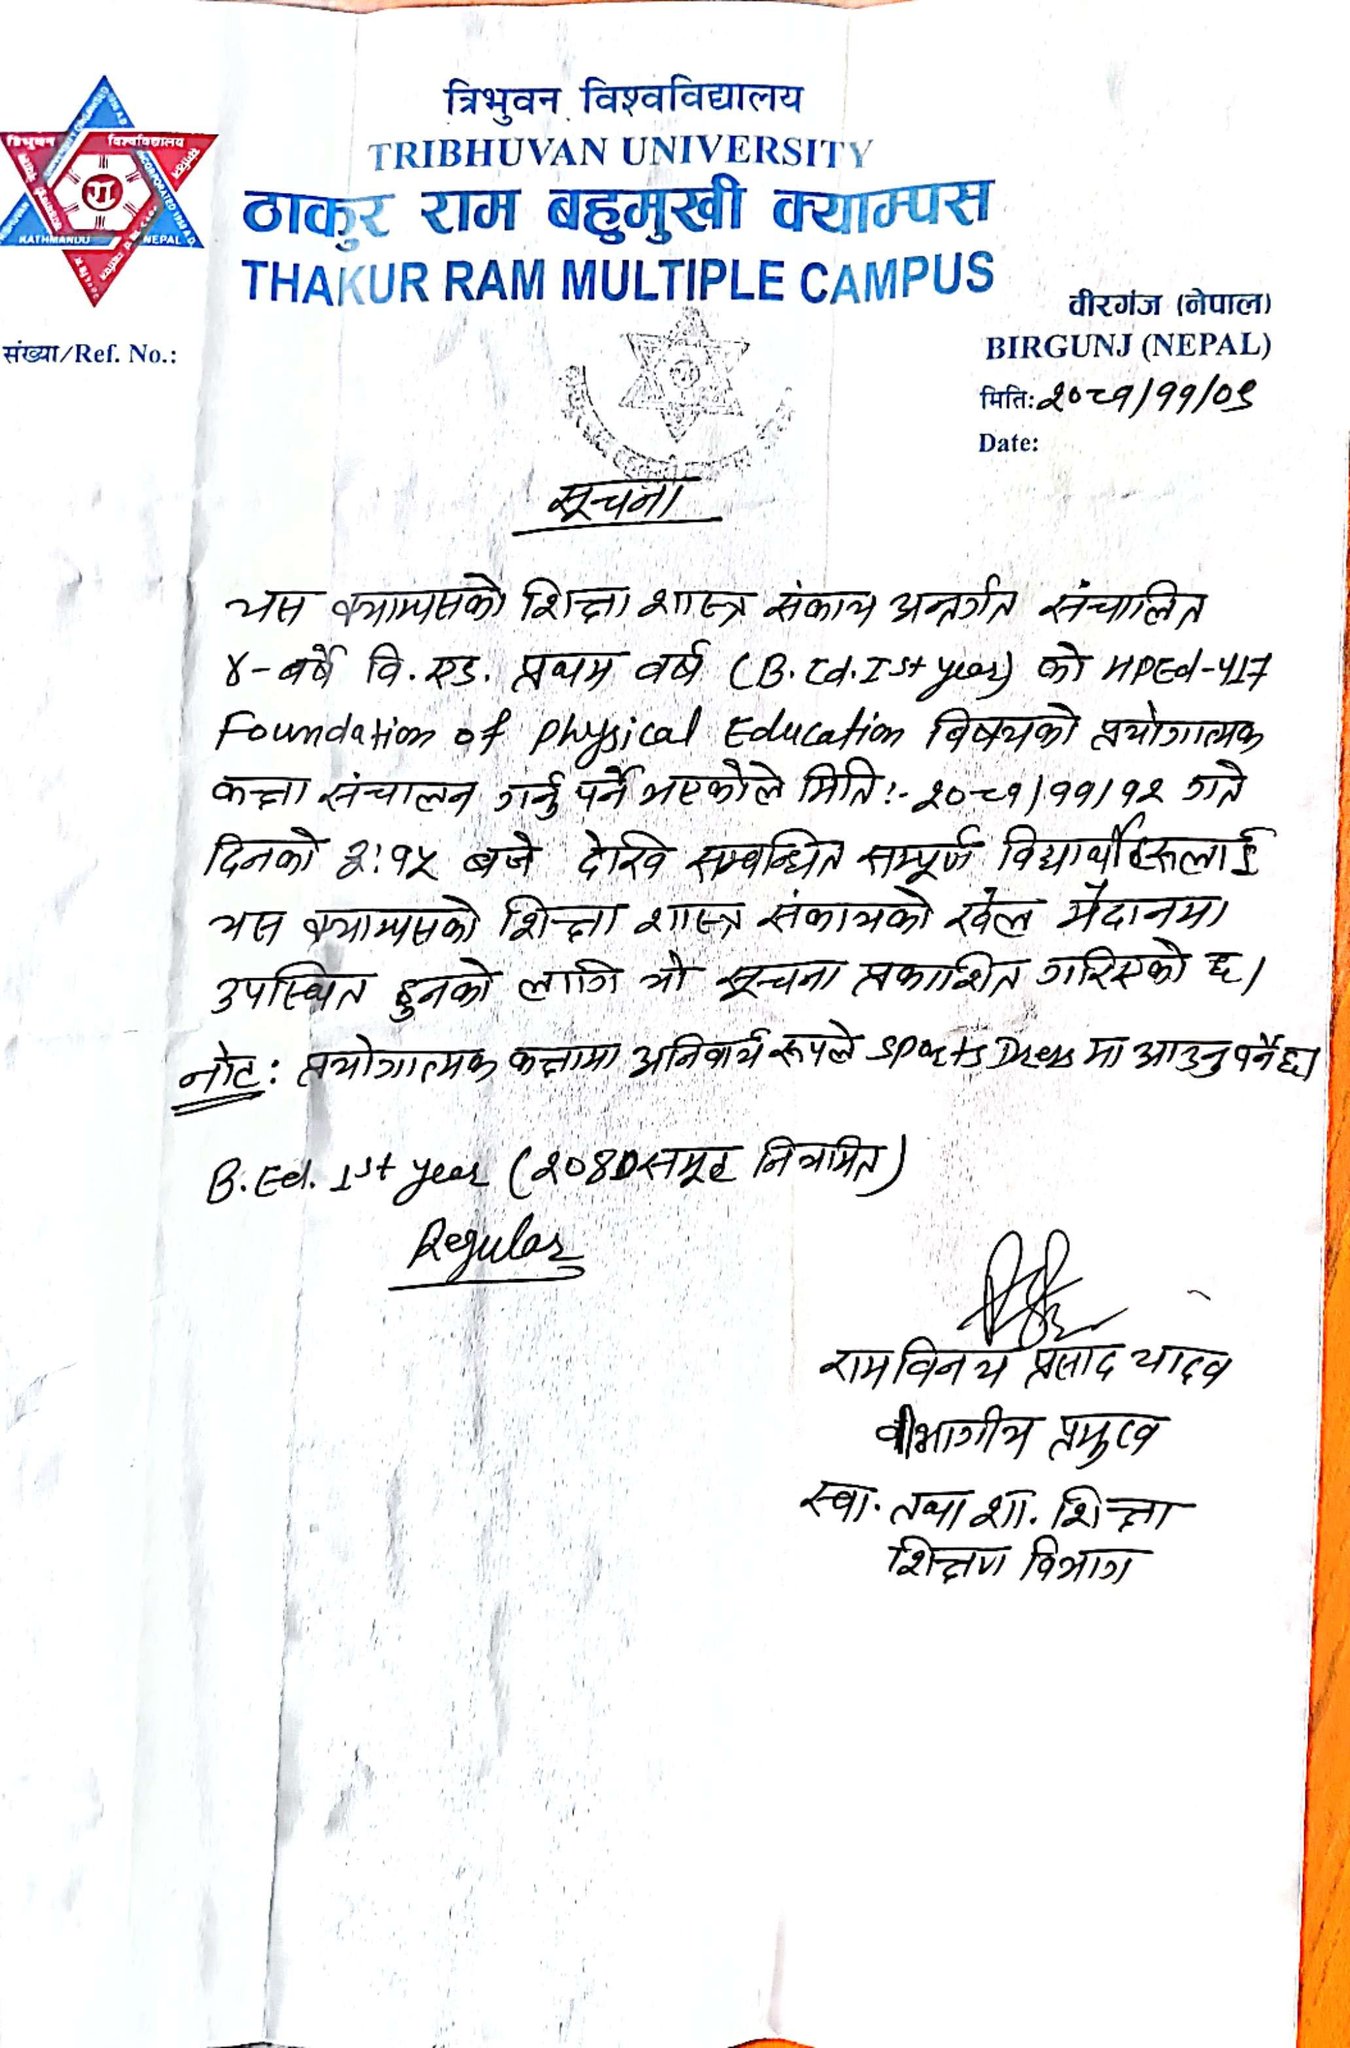 त्रिभुवन विश्वविद्यालय
TRIBHUVAN UNIVERSITY
ठाकुर राम बहुमुखी क्याम्पस
THAKUR RAM MULTIPLE CAMPUS
वीरगंज (नेपाल)
BIRGUNJ (NEPAL)
संख्या/Ref. No.:
मिति: २०८१/११/०९
Date:
त्रिभुवन विश्वविद्यालय
KATHMANDU NEPAL
सूचना
यस क्याम्पसको शिक्षा शास्त्र संकाय अन्तर्गत संचालित
४-बर्षे वि.एड. प्रथम वर्ष (B.Ed.Ist year) को HPEd-417
Foundation of Physical Education विषयको प्रयोगात्मक
कक्षा संचालन गर्नु पर्ने भएकोले मिति:- २०८१/११/१२ गते
दिनको २:१५ बजे देखि सम्बन्धित सम्पूर्ण विद्यार्थीहरूलाई
यस क्याम्पसको शिक्षा शास्त्र संकायको खेल मैदानमा
उपस्थित हुनको लागि यो सूचना प्रकाशित गरिएको छ।
नोट: प्रयोगात्मक कक्षामा अनिवार्य रूपले Sports Dress मा आउनु पर्नेछ।
B.Ed. Ist year (२०80 समूह नियमित)
Regular
रामविनय प्रसाद यादव
वीभागीय प्रमुख
स्वा. तथा शा. शिक्षा
शिक्षण विभाग